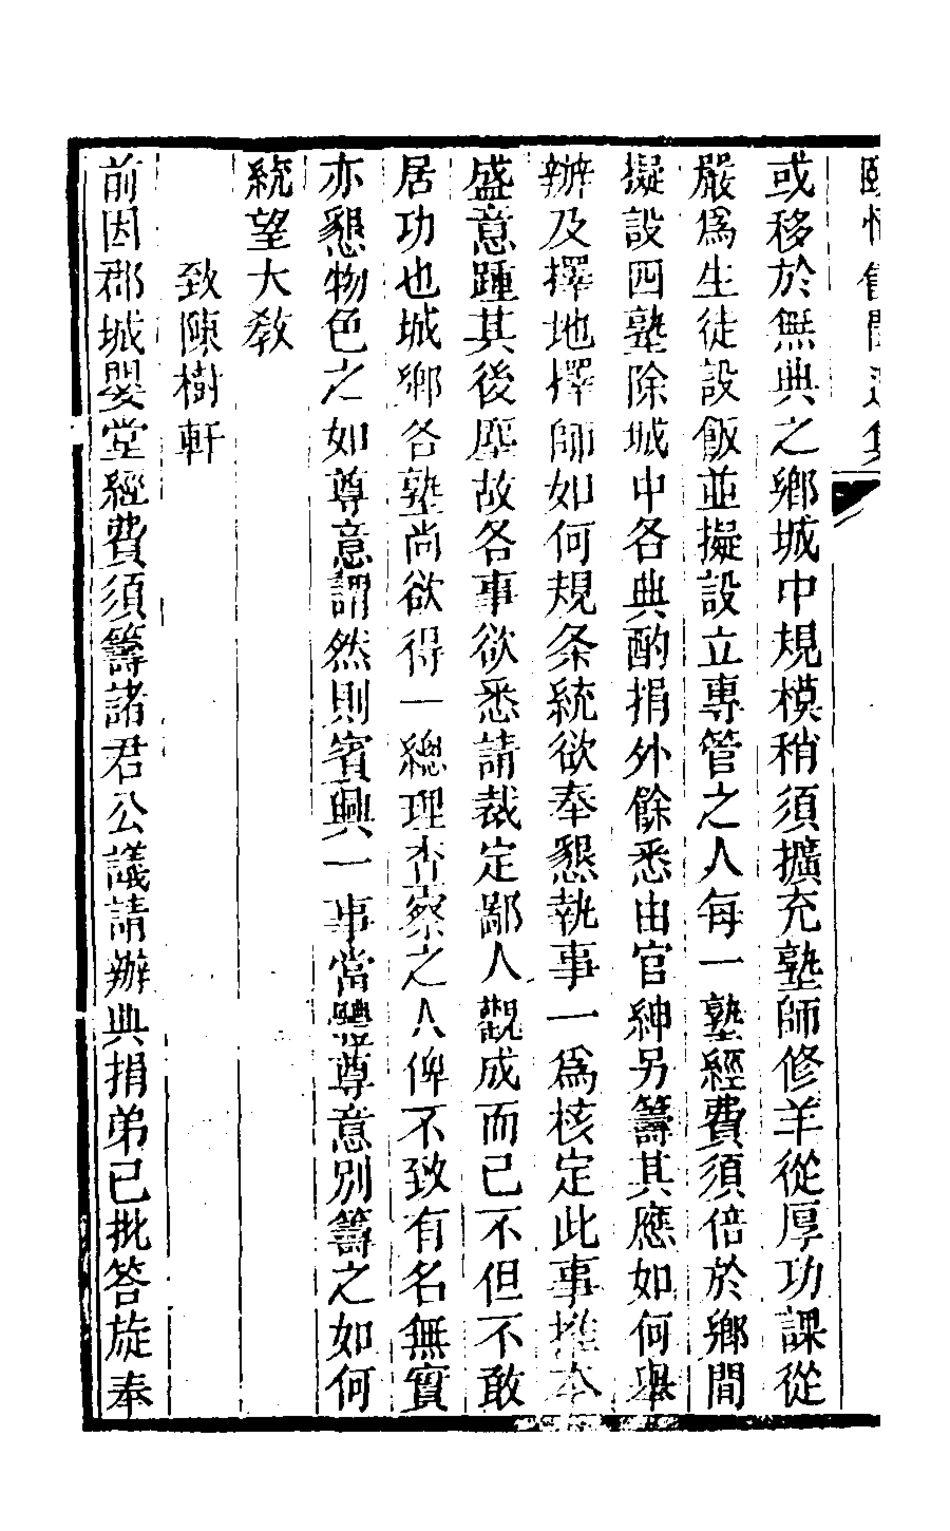 或移於無典之鄉城中規模稍須擴充塾師修羊從厚功課從
嚴爲生徒設飯並擬設立專管之人每一塾經費須倍於鄉間
擬設四塾除城中各典酌捐外餘悉由官紳另籌其應如何舉
辦及擇地擇師如何規条統欲奉懇執事一爲核定此事推本
盛意踵其後塵故各事欲悉請裁定鄙人觀成而已不但不敢
居功也城鄉各塾尚欲得一總理杳察之人俾不致有名無實
亦懇物色之如尊意謂然則賓興一事當體尊意別籌之如何
統望大敎
致陳樹軒
前因郡城嬰堂經費須籌諸君公議請辦典捐弟已批答旋奉